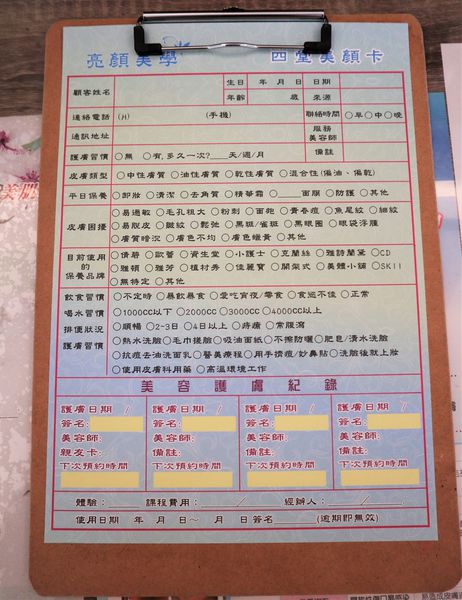 亮顏美學 四堂美顏卡
顧客姓名 生日 年 月 日 日期
年齡 歲 來源
連絡電話 (H) (手機) 聯絡時間 ○早○中○晚
通訊地址 服務美容師
護膚習慣 ○無 ○有,多久一次?___天/週/月 備註
皮膚類型 ○中性膚質 ○油性膚質 ○乾性膚質 ○混合性(偏油、偏乾)
平日保養 ○卸妝 ○清潔 ○去角質 ○精華霜 ○____面膜 ○防護 ○其他
皮膚困擾 ○易過敏 ○毛孔粗大 ○粉刺 ○面皰 ○青春痘 ○魚尾紋 ○細紋
○易脫皮 ○皺紋 ○鬆弛 ○黑斑/雀斑 ○黑眼圈 ○眼袋浮腫
○膚質暗沉 ○膚色不均 ○膚色蠟黃 ○其他
目前使用的保養品牌 ○倩碧 ○歐蕾 ○資生堂 ○小護士 ○克蘭絲 ○雅詩蘭黛 ○CD
○雅頓 ○雅芳 ○植村秀 ○佳麗寶 ○開架式 ○美體小舖 ○SKII
○無特定 ○其他
飲食習慣 ○不定時 ○暴飲暴食 ○愛吃宵夜/零食 ○食慾不佳 ○正常
喝水習慣 ○1000CC以下 ○2000CC ○3000CC ○4000CC以上
排便狀況 ○順暢 ○2-3日 ○4日以上 ○痔瘡 ○常腹瀉
護膚習慣 ○熱水洗臉 ○毛巾搓臉 ○吸油面紙 ○不擦防曬 ○肥皂/清水洗臉
○抗痘去油洗面乳 ○醫美療程 ○用手擠痘/妙鼻貼 ○洗臉後就上妝
○使用皮膚科用藥 ○高溫環境工作
美容護膚紀錄
護膚日期 / 護膚日期 / 護膚日期 / 護膚日期 /
簽名: 簽名: 簽名: 簽名:
美容師: 美容師: 美容師: 美容師:
親友卡: 備註: 備註: 備註:
下次預約時間 下次預約時間 下次預約時間 下次預約時間
體驗:____ 課程費用:____/____ 經辦人:____/____
使用日期 年 月 日~ 月 日簽名____(逾期即無效)